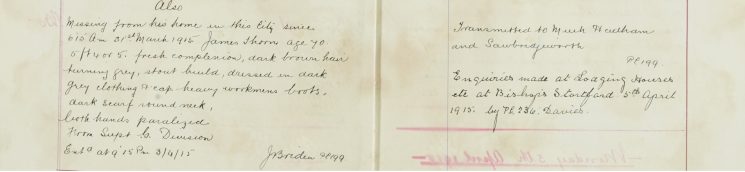 Also
Missing from his home in this City since
6.15 Am 31st March 1915 James Thorn age 70
5ft 4 or 5. fresh complexion, dark brown hair
turning grey, stout build, dressed in dark
grey clothing & cap heavy workmens boots,
dark scarf round neck,
both hands paralized
From Supt G. Division
Entd at 9.15 Pm 3/4/15 J Briden PC 199
Transmitted to Much Hadham
and Sawbridgeworth
PC 199
Enquiries made at Lodging Houses
etc at Bishops Stortford 5th April
1915. by PC 236. Davies.
Monday 5th April 1915